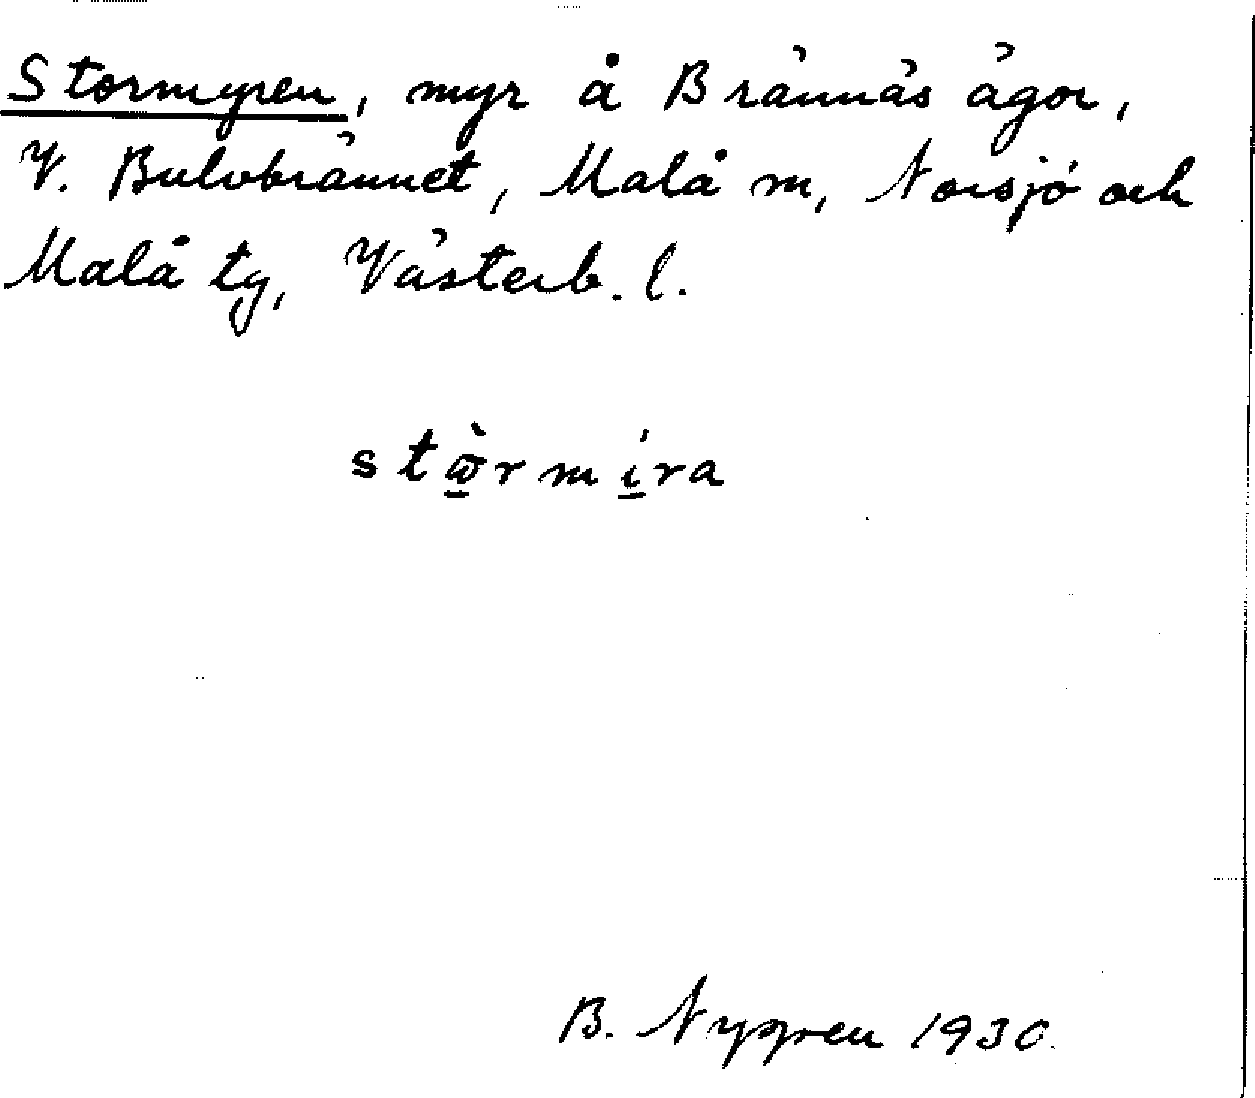 Stormyren, myr å Brännäs ägor,
V. Bulvbrännet, Malå sn, Norsjö och
Malå tg, Västerb. l.
stὼ̱rmi̱ra
B. Nygren 1930.